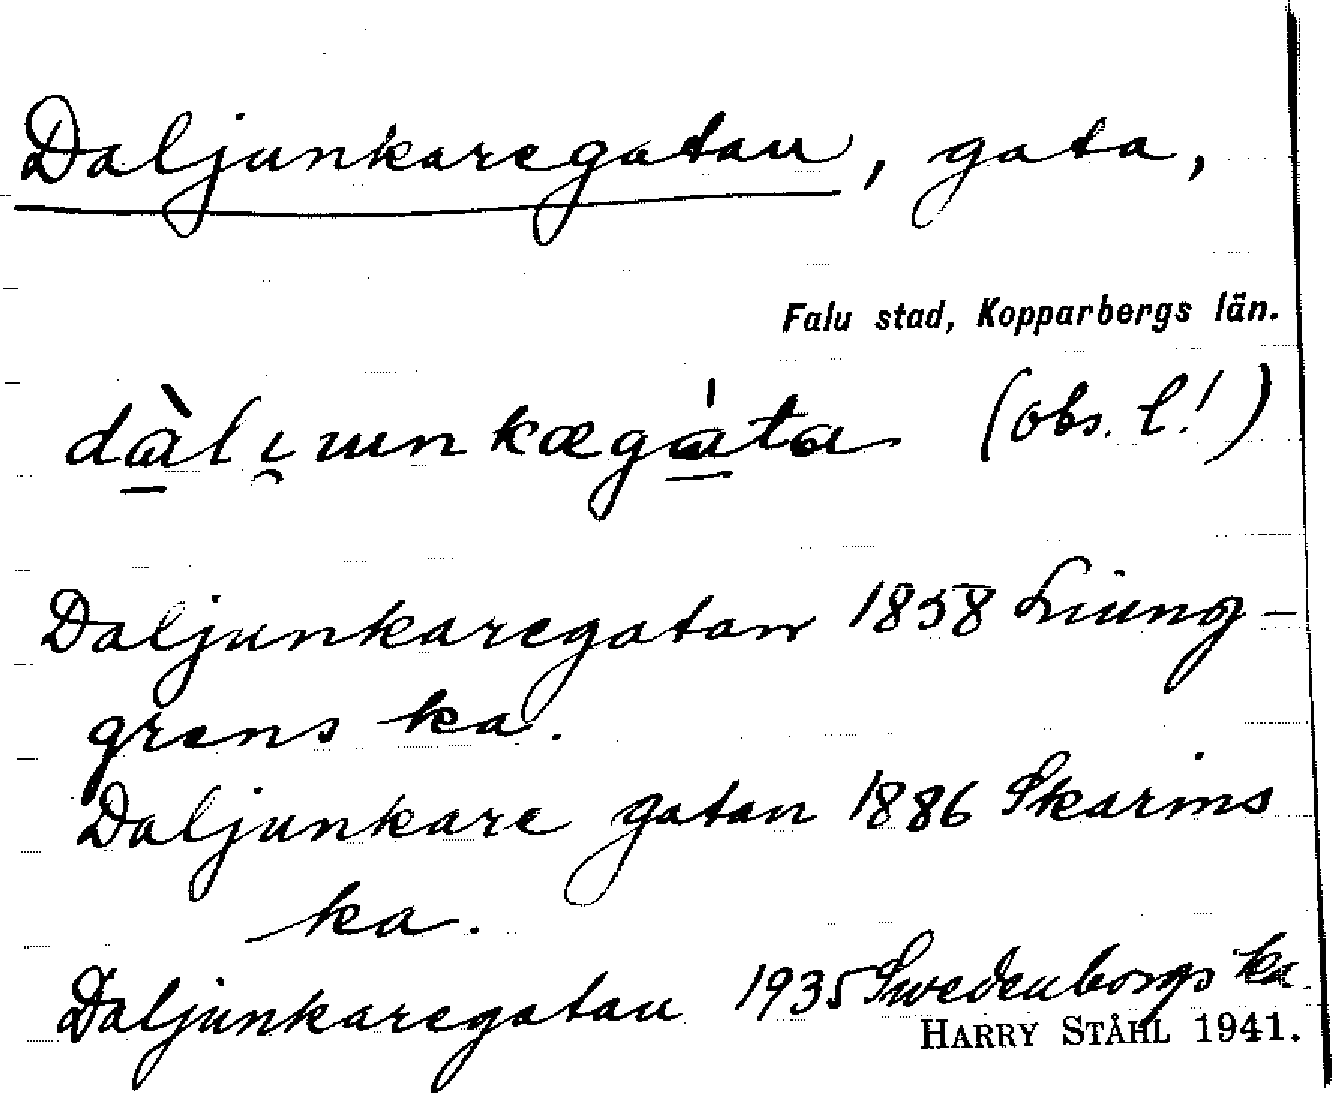 Daljunkaregatan, gata,
Falu stad, Kopparbergs län.
dàlı̯unkægáta (obs. l!)
Daljunkaregatan 1858 Liung-
grens ka.
Daljunkare gatan 1886 Skarins
ka.
Daljunkaregatan 1935 Swedenborgs ka
HARRY STÅHL 1941.